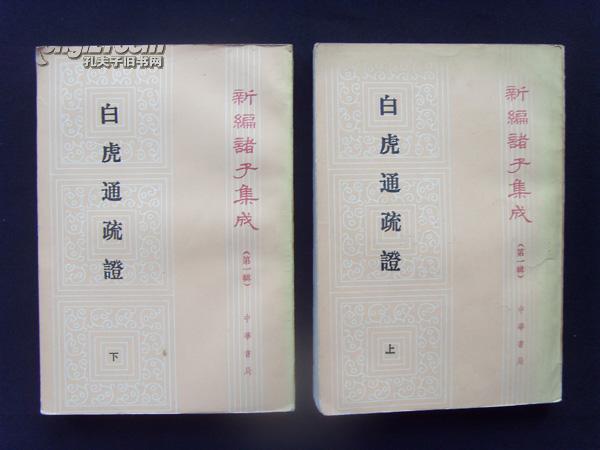 孔夫子旧书网
新編諸子集成
（第一輯）
白虎通疏證
下
中華書局
新編諸子集成
（第一輯）
白虎通疏證
上
中華書局